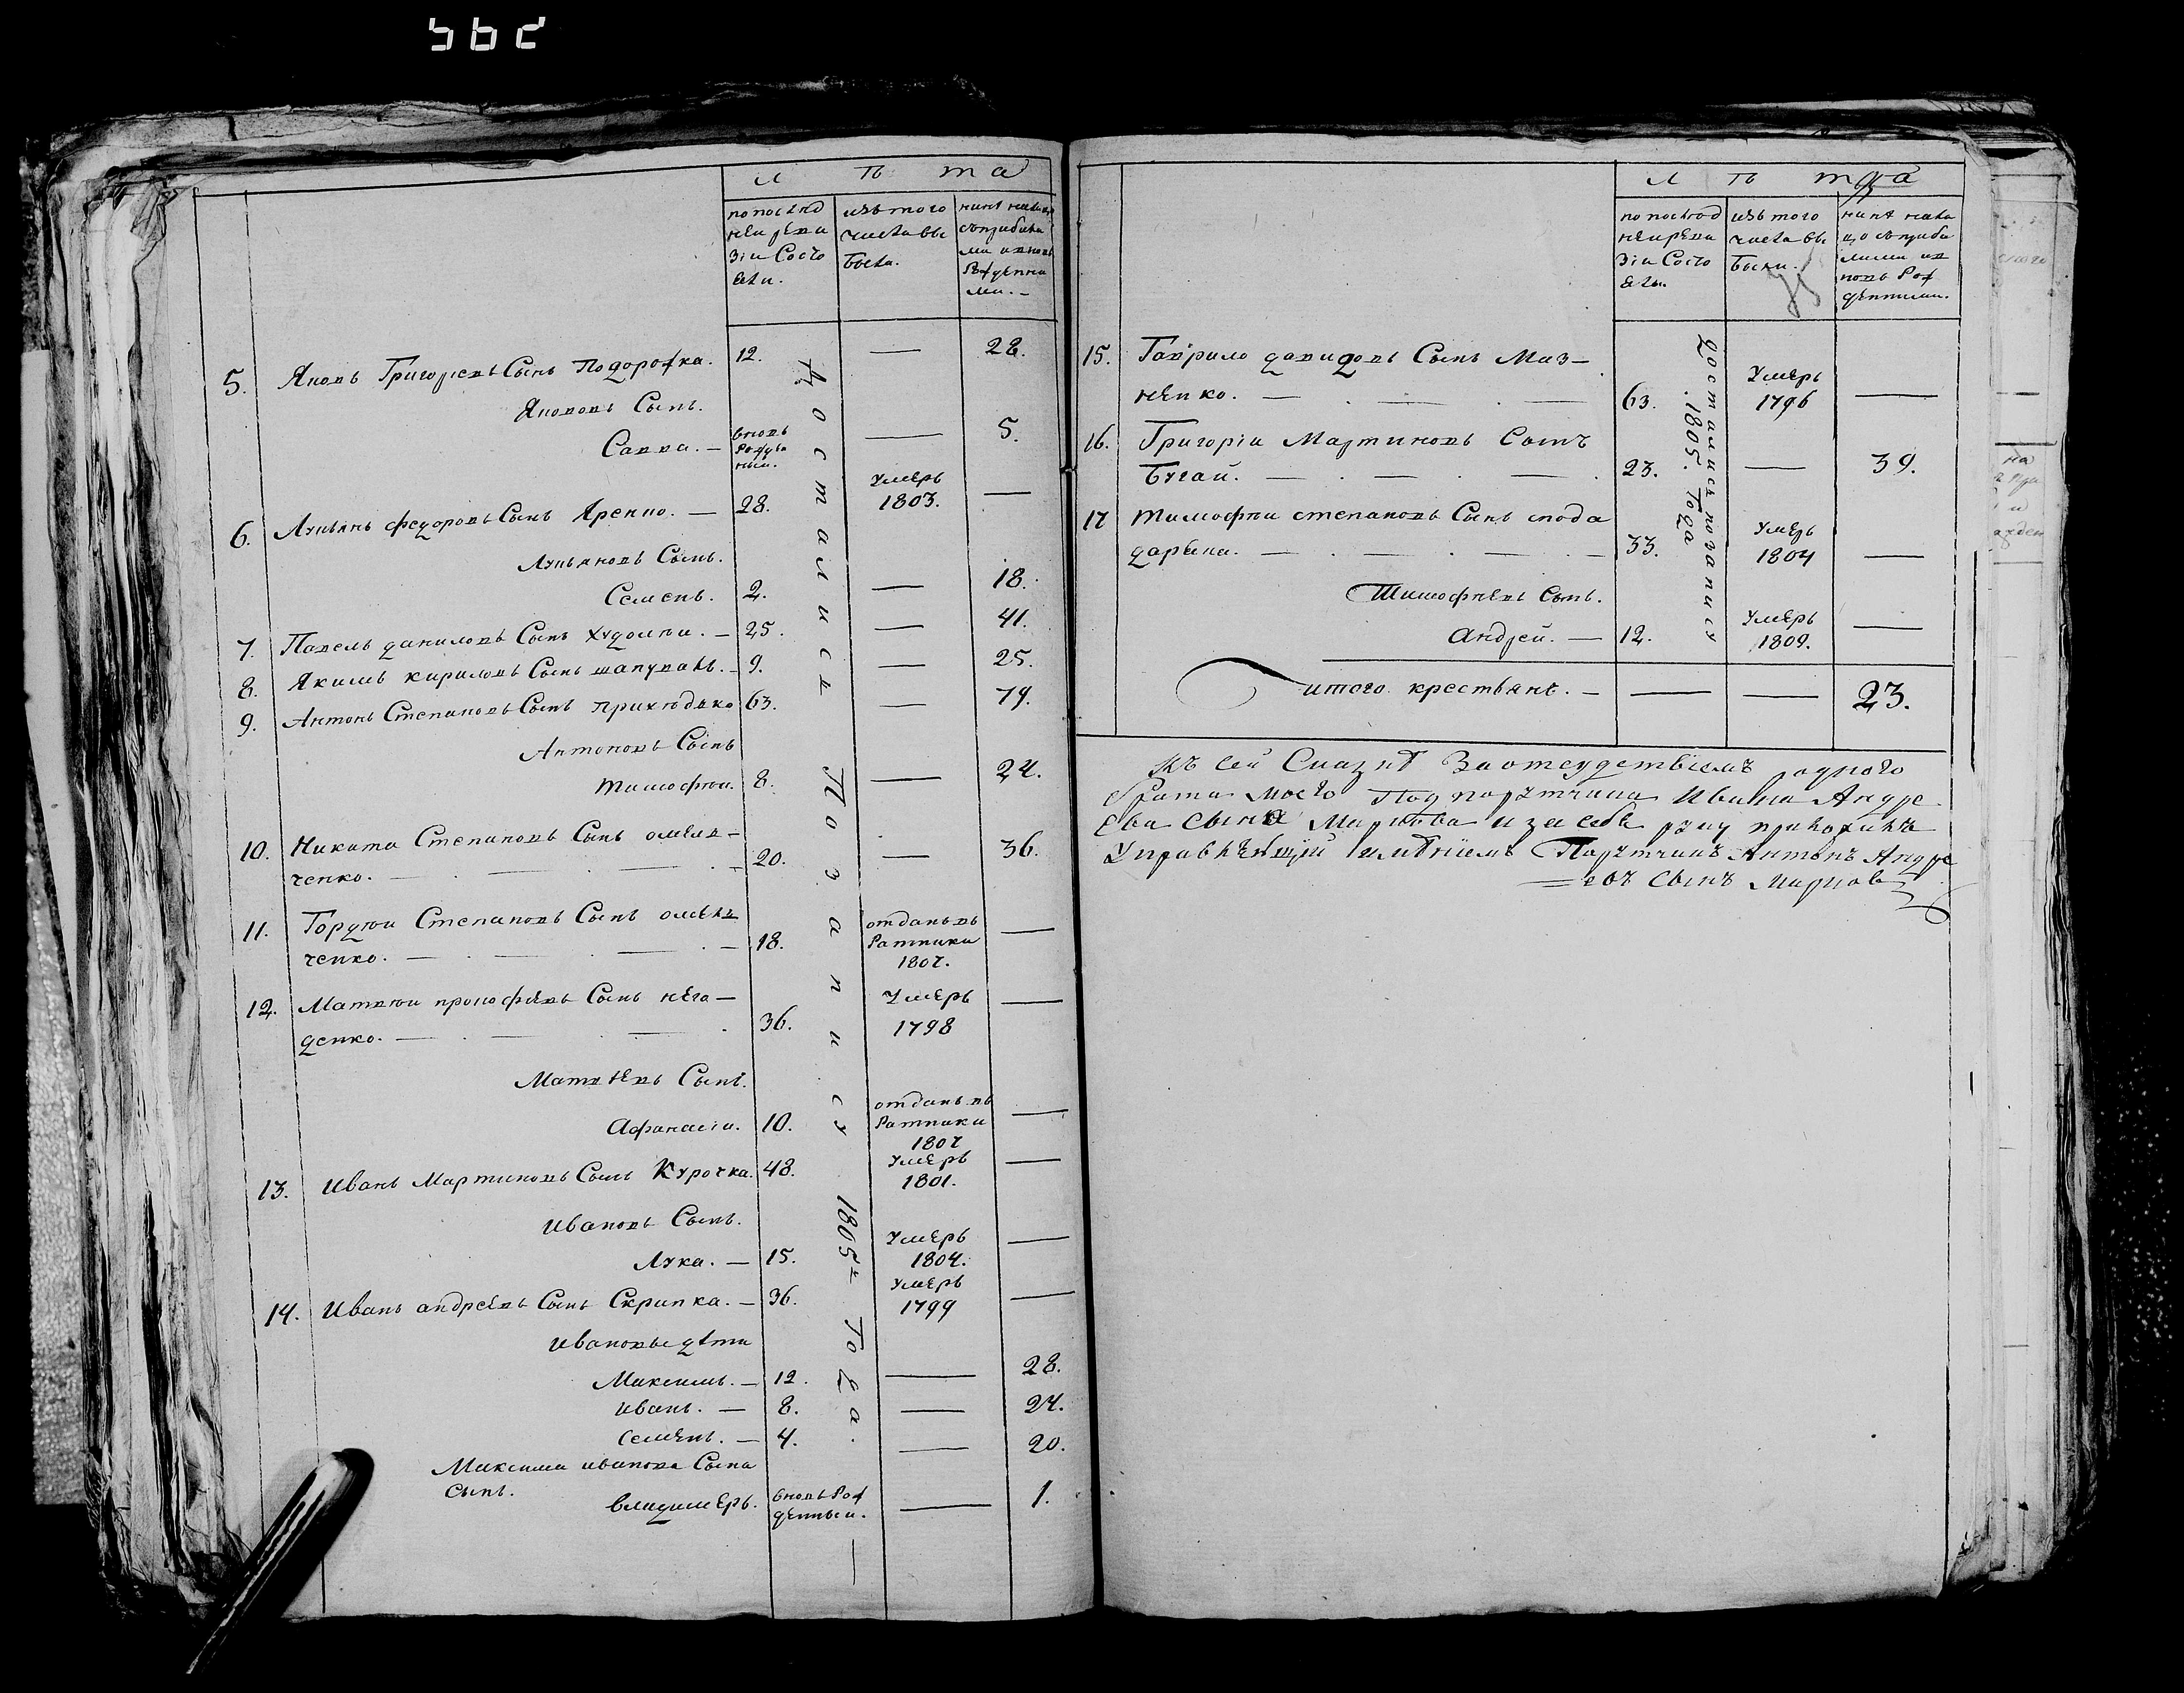 лѣта
по послѣд
ней реви
зіи Состо
яли.
изъ того
числа вы
было.
нынѣ налицо
съ прибыла
ми и вновь
Рожденны
ми. —
5. Яковъ Григорьевъ Сынъ Подорожка. 12. — 28.
Яковавъ Сынъ.
Савва. — вновь Рожден ный. — 5.
6. Лукьянъ федоровъ Сынъ Яренко. — 28. умеръ 1803. —
Лукьяновъ Сынъ.
Семенъ. 2. — 18.
7. Павелъ даниловъ Сынъ Худолѣи. — 25. — 41.
8. Якимъ кириловъ Сынъ шаповалъ. — 9. — 25.
9. Антонъ Степановъ Сынъ Приходко 63. — 79.
Антоновъ Сынъ
Тимофѣи. 8. — 24.
10. Никита Степановъ Сынъ омель-
ченко. — 20. — 36.
11. Гордѣи Степановъ Сынъ омель
ченко. — 18. отданъ въ Ратники 1807. —
12. Матвѣи прокофьевъ Сынъ нега—
денко. — 36. умеръ 1798 —
Матвѣевъ Сынъ.
Афанасіи. 10. отданъ въ Ратники 1807 —
13. Иванъ Мартиновъ Сынъ Курочка. 48. умеръ 1801. —
Ивановъ Сынъ.
Лука. — 15. умеръ 1804. —
14. Иванъ андреевъ Сынъ Скрипка. — 36. умеръ 1799 —
Ивановы дѣти
Максимъ. — 12. — 28.
Иванъ. — 8. — 24.
Семенъ. — 4. — 20.
Максима иванова Сына
Сынъ.
владимеръ. вновь Рож денный. — 1.
Достались По записи 1805го Года.
лѣта
по послѣд
ней реви
зіи Состо
яли.
изъ того
числа вы
были.
нынѣ нали
цо съ прибы
лыми и в
новь Рож
денными.
15. Гаврило давидовъ Сынъ Маз—
ненко. — 63. умеръ 1796 —
16. Григоріи Мартиновъ Сынъ
Бугай. — 23. — 39.
17 Тимофѣи степановъ Сынъ спода
дарика. — 33. умеръ 1804 —
Тимофѣевъ Сынъ.
Андрей. — 12. умеръ 1809. —
достались по записи 1805. Года
итого крестьянъ. — — — 23.
Къ сей Сказкѣ За отсудствіемъ роднаго
брата моего Подпорутчика Ивана Андре
ева Сына Маркова и за себя руку приложилъ
Управляющій имѣніемъ Порутчикъ Антонъ Андре
= евъ Сынъ Марков